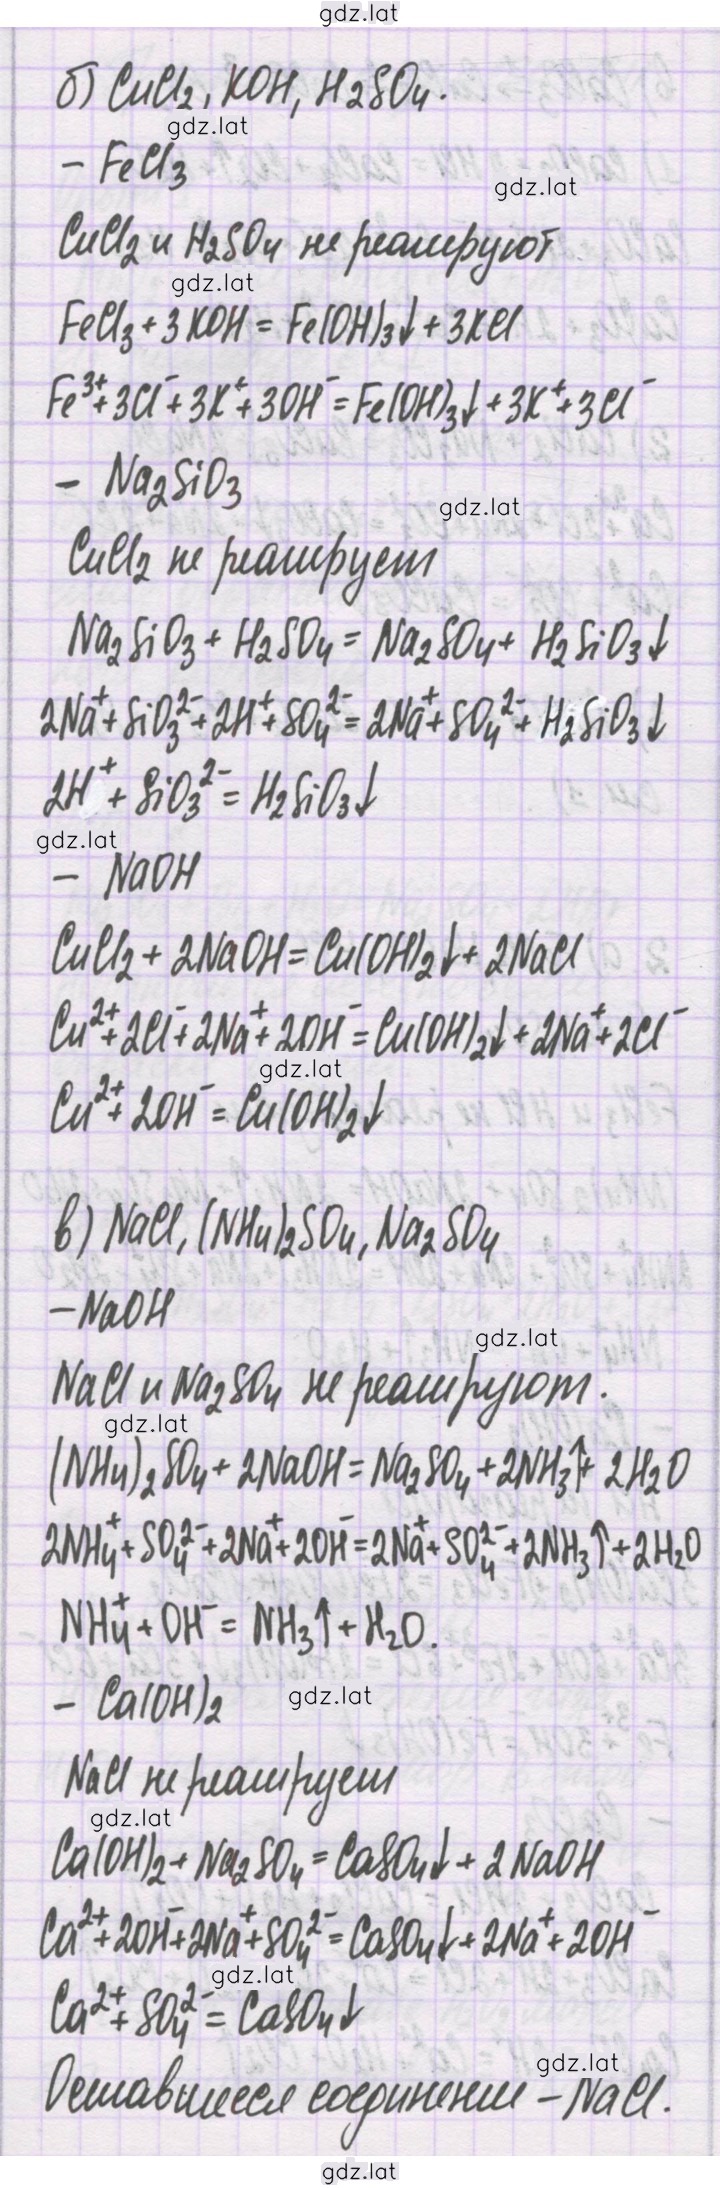 gdz.lat
б) CuCl₂, KOH, H₂SO₄.
gdz.lat
– FeCl₃
gdz.lat
CuCl₂ и H₂SO₄ не реагируют
gdz.lat
FeCl₃ + 3KOH = Fe(OH)₃↓ + 3KCl
Fe³⁺ + 3Cl⁻ + 3K⁺ + 3OH⁻ = Fe(OH)₃↓ + 3K⁺ + 3Cl⁻
– Na₂SiO₃
gdz.lat
CuCl₂ не реагирует
Na₂SiO₃ + H₂SO₄ = Na₂SO₄ + H₂SiO₃↓
2Na⁺ + SiO₃²⁻ + 2H⁺ + SO₄²⁻ = 2Na⁺ + SO₄²⁻ + H₂SiO₃↓
2H⁺ + SiO₃²⁻ = H₂SiO₃↓
gdz.lat
– NaOH
CuCl₂ + 2NaOH = Cu(OH)₂↓ + 2NaCl
Cu²⁺ + 2Cl⁻ + 2Na⁺ + 2OH⁻ = Cu(OH)₂↓ + 2Na⁺ + 2Cl⁻
gdz.lat
Cu²⁺ + 2OH⁻ = Cu(OH)₂↓
в) NaCl, (NH₄)₂SO₄, Na₂SO₄
– NaOH
gdz.lat
NaCl и Na₂SO₄ не реагируют.
gdz.lat
(NH₄)₂SO₄ + 2NaOH = Na₂SO₄ + 2NH₃↑ + 2H₂O
2NH₄⁺ + SO₄²⁻ + 2Na⁺ + 2OH⁻ = 2Na⁺ + SO₄²⁻ + 2NH₃↑ + 2H₂O
NH₄⁺ + OH⁻ = NH₃↑ + H₂O.
– Ca(OH)₂
gdz.lat
NaCl не реагирует
gdz.lat
Ca(OH)₂ + Na₂SO₄ = CaSO₄↓ + 2NaOH
Ca²⁺ + 2OH⁻ + 2Na⁺ + SO₄²⁻ = CaSO₄↓ + 2Na⁺ + 2OH⁻
gdz.lat
Ca²⁺ + SO₄²⁻ = CaSO₄↓
gdz.lat
Оставшееся соединение – NaCl.
gdz.lat